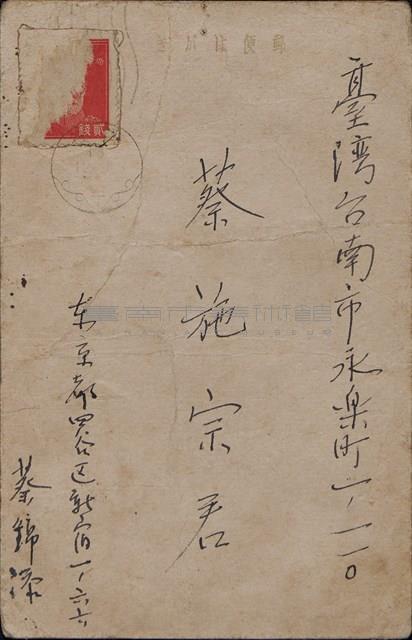 郵便はがき
貳錢
臺湾台南市永楽町一ノ一一〇
蔡施宗君
东京都四谷区新宿一ノ六六
蔡錦添